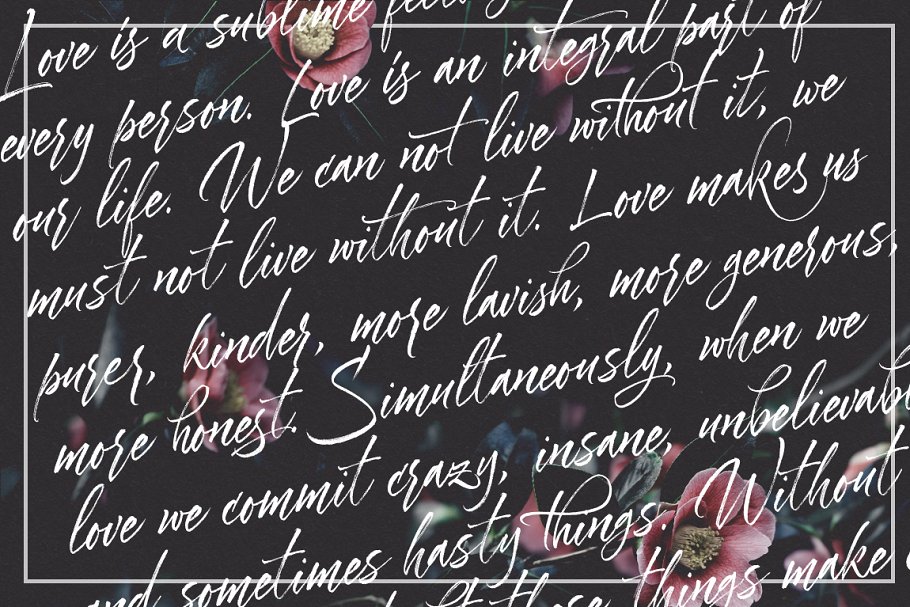 Love is a sublime feeling
every person. Love is an integral part of
our life. We can not live without it, we
must not live without it. Love makes us
purer, kinder, more lavish, more generous,
more honest. Simultaneously, when we
love we commit crazy, insane, unbelievabl
and sometimes hasty things. Without
those things make